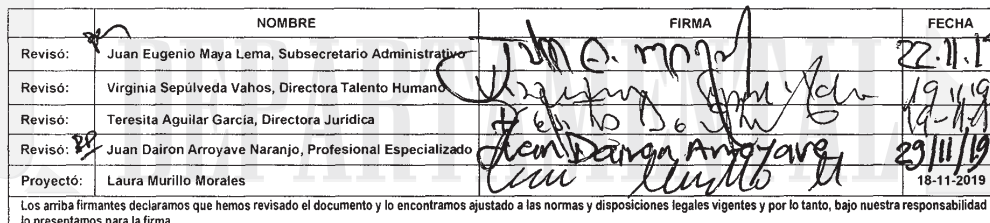 NOMBRE FIRMA FECHA
Revisó: Juan Eugenio Maya Lema, Subsecretario Administrativo 22.11.1
Revisó: Virginia Sepúlveda Vahos, Directora Talento Humano 19/11/19
Revisó: Teresita Aguilar García, Directora Jurídica
Revisó: Juan Dairon Arroyave Naranjo, Profesional Especializado Juan Dairon Arroyave 29/11/19
Proyectó: Laura Murillo Morales 18-11-2019
Los arriba firmantes declaramos que hemos revisado el documento y lo encontramos ajustado a las normas y disposiciones legales vigentes y por lo tanto, bajo nuestra responsabilidad
lo presentamos para la firma